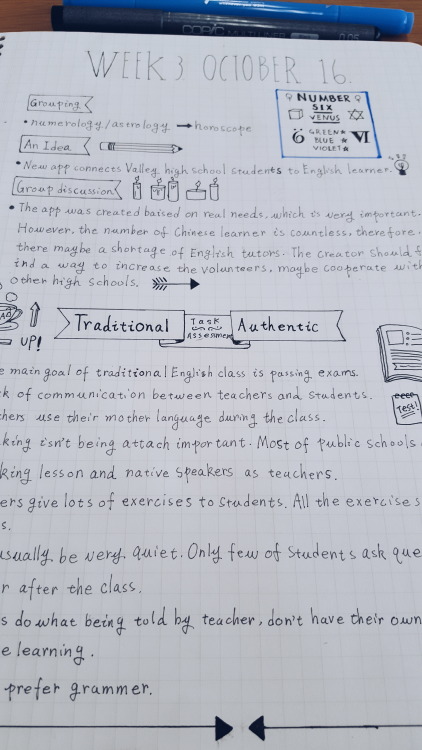 WEEK 3 OCTOBER 16.
Grouping
• numerology/astrology → horoscope
NUMBER
SIX
VENUS
6
GREEN★
BLUE ★
VIOLET★
VI
An Idea
• New app connects Valley high school students to English learner.
Group discussion
• The app was created baised on real needs, which is very important.
However, the number of Chinese learner is countless, therefore,
there maybe a shortage of English tutors. The creator should f
ind a way to increase the volunteers, maybe cooperate with
other high schools.
UP!
Traditional
Task
Assessment
Authentic
Test!
e main goal of traditional English class is passing exams.
k of communication between teachers and students.
hers use their mother language during the class.
king isn't being attach important. Most of public schools
king lesson and native speakers as teachers.
ers give lots of exercises to students. All the exercises
s.
usually be very quiet. Only few of students ask que
r after the class.
s do what being told by teacher, don't have their own
e learning.
prefer grammer.